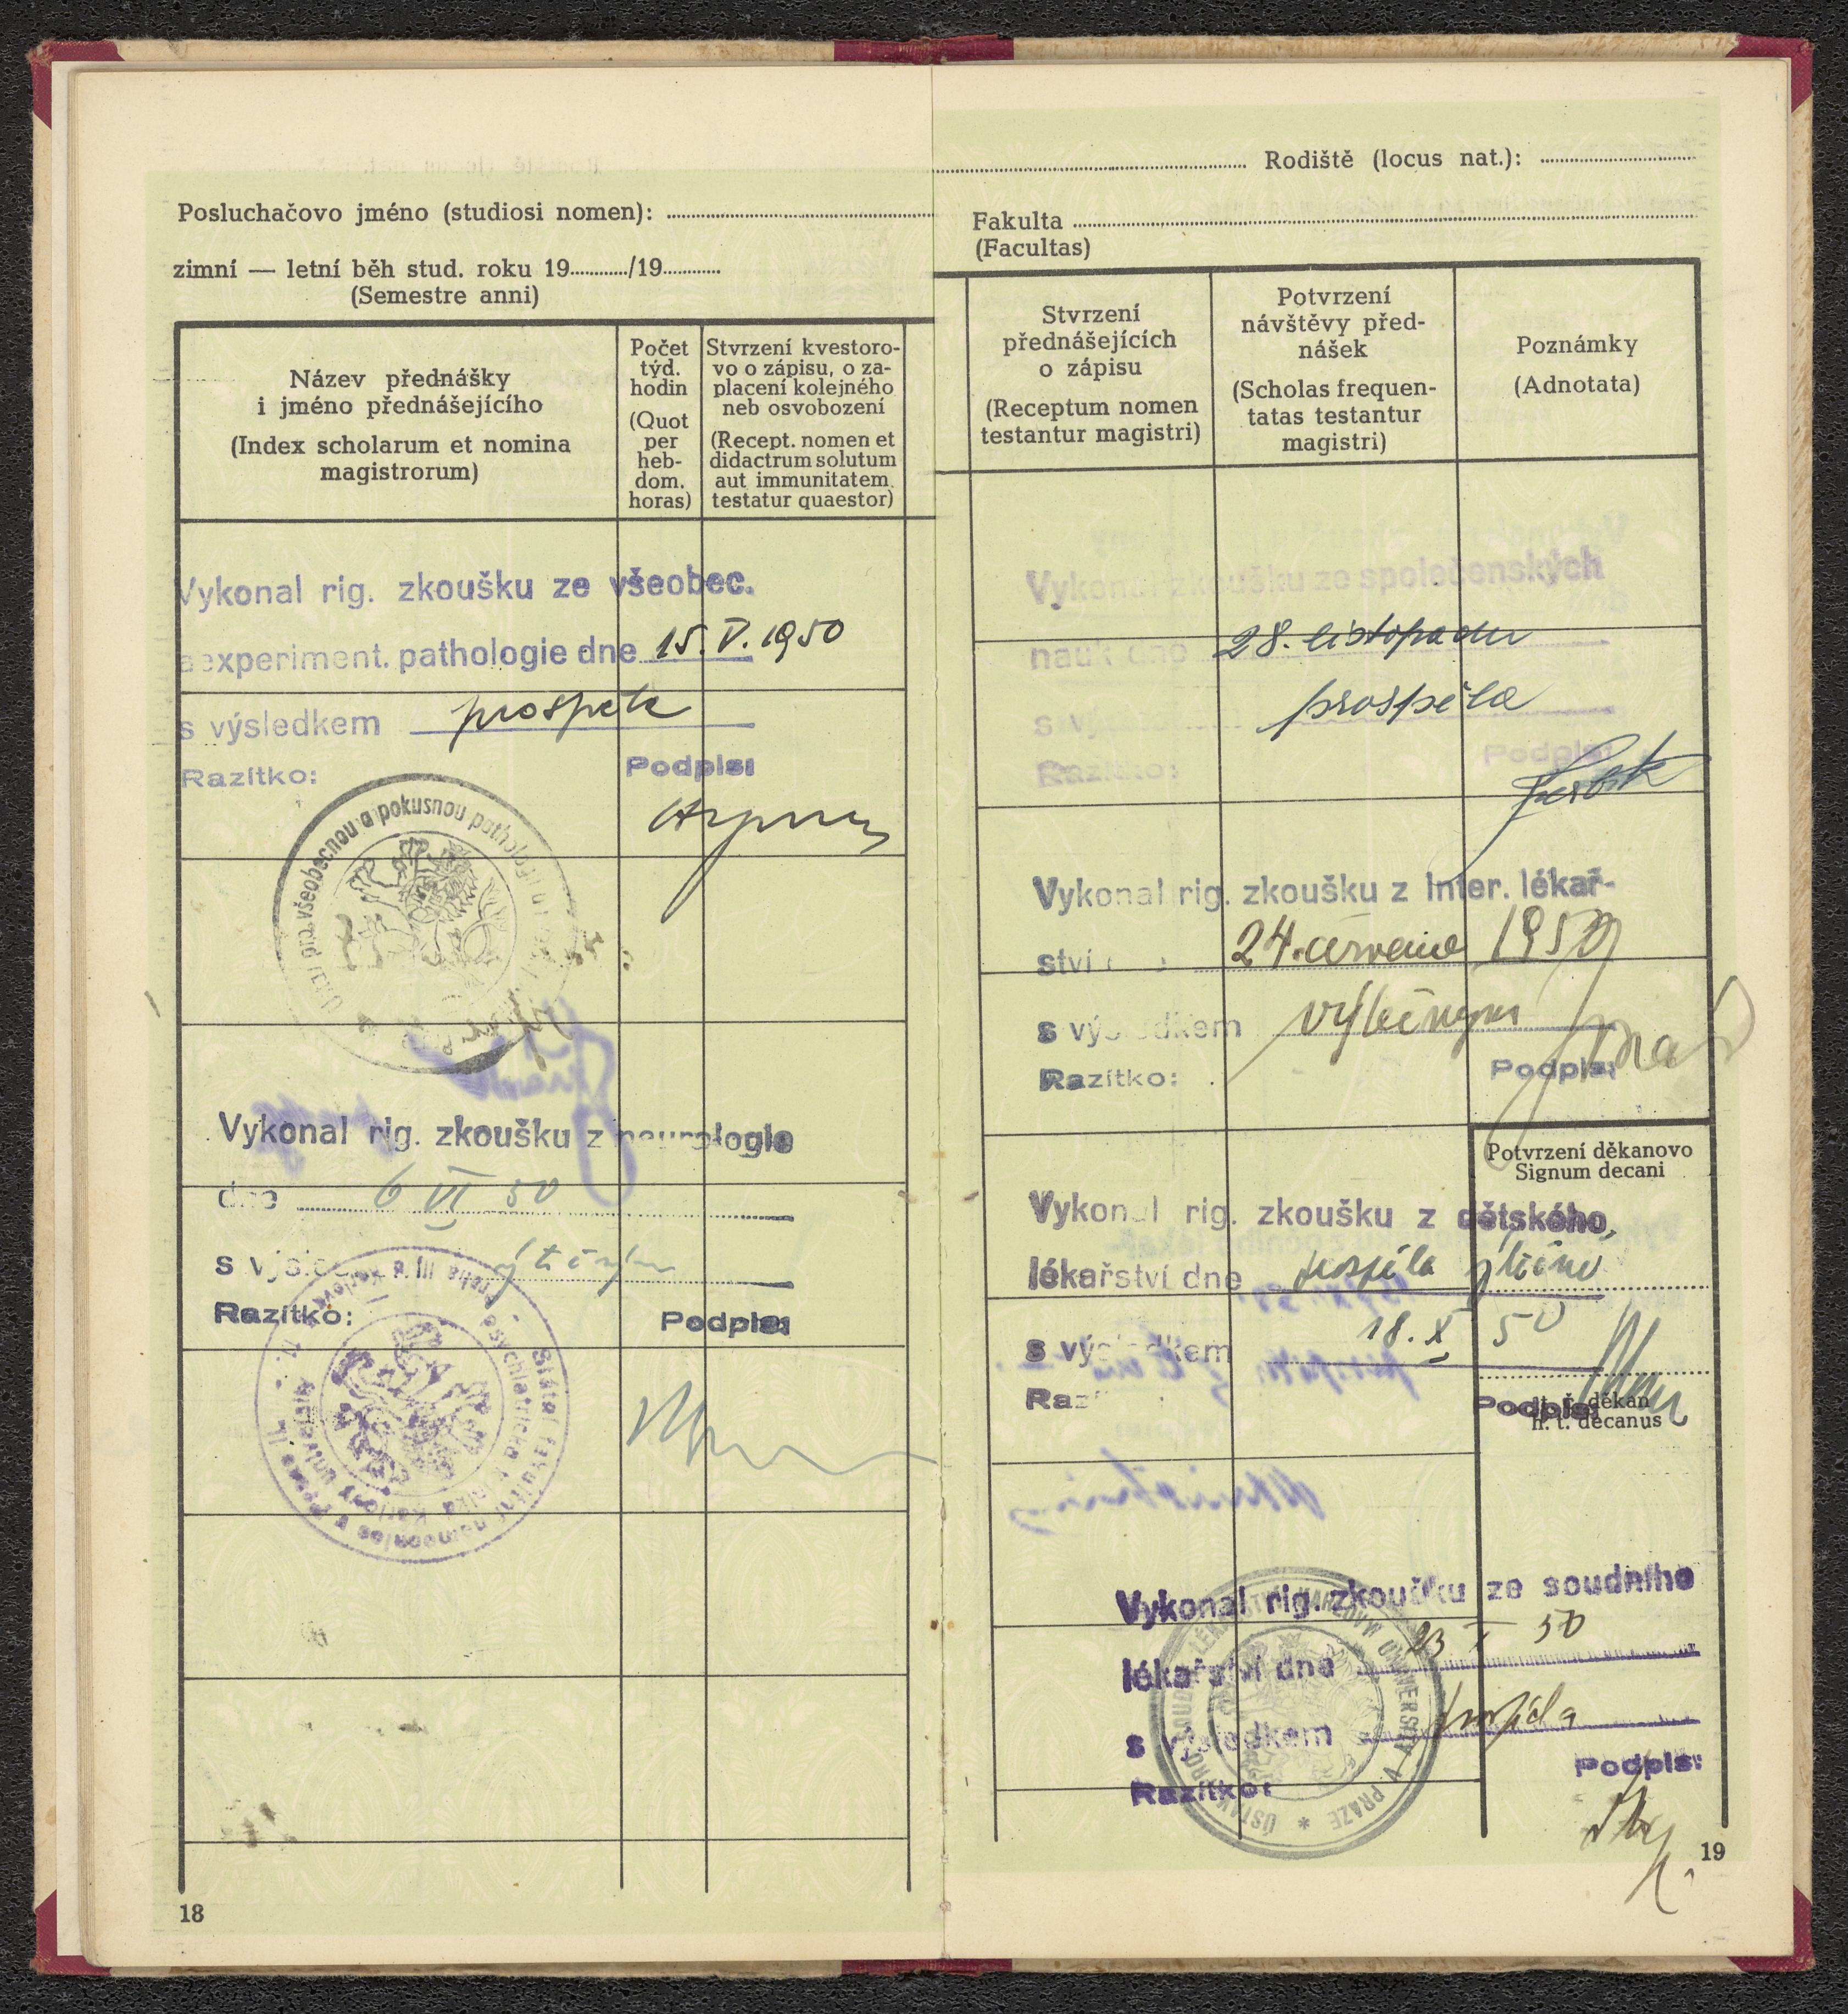 Posluchačovo jméno (studiosi nomen):
zimní — letní běh stud. roku 19........../19..........
(Semestre anni)
Název přednášky
i jméno přednášejícího
(Index scholarum et nomina
magistrorum)
Počet
týd.
hodin
(Quot
per
heb-
dom.
horas)
Stvrzení kvestoro-
vo o zápisu, o za-
placení kolejného
neb osvobození
(Recept. nomen et
didactrum solutum
aut immunitatem
testatur quaestor)
Vykonal rig. zkoušku ze všeobec.
a experiment. pathologie dne 15. V. 1950
s výsledkem prospěla
Razítko: Podpis:
Ústav pro všeobecnou a pokusnou pathologii
Vykonal rig. zkoušku z neurologie
dne 6 VI 50
s výsledkem
Razítko: Podpis:
Státní fakultní nemocnice v Praze II.
psychiatrická klinika Karlovy university
18
Rodiště (locus nat.):
Fakulta
(Facultas)
Stvrzení
přednášejících
o zápisu
(Receptum nomen
testantur magistri)
Potvrzení
návštěvy před-
nášek
(Scholas frequen-
tatas testantur
magistri)
Poznámky
(Adnotata)
Vykonal zkoušku ze společenských
nauk dne 28. listopadu
s výsledkem prospěla
Razítko: Podpis:
Vykonal rig. zkoušku z inter. lékař-
ství dne 24. července 1950
s výsledkem výtečným
Razítko: Podpis:
Potvrzení děkanovo
Signum decani
Vykonal rig. zkoušku z dětského,
lékařství dne prospěla výtečně
s výsledkem 18. X 50
Razítko: Podpis:
t. č. děkan
h. t. decanus
Vykonal rig. zkoušku ze soudního
lékařství dne 23 X 50
s výsledkem prospěla
Razítko: Podpis:
ÚSTAV PRO SOUDNÍ LÉKAŘSTVÍ KARLOVY UNIVERSITY V PRAZE *
19